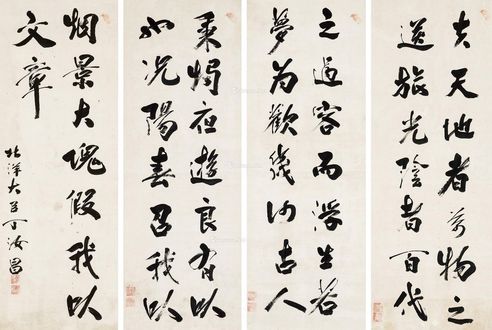 夫天地者萬物之
逆旅光陰者百代
之過客而浮生若
夢為歡幾何古人
秉燭夜遊良有以
也況陽春召我以
烟景大塊假我以
文章
北洋大臣丁汝昌